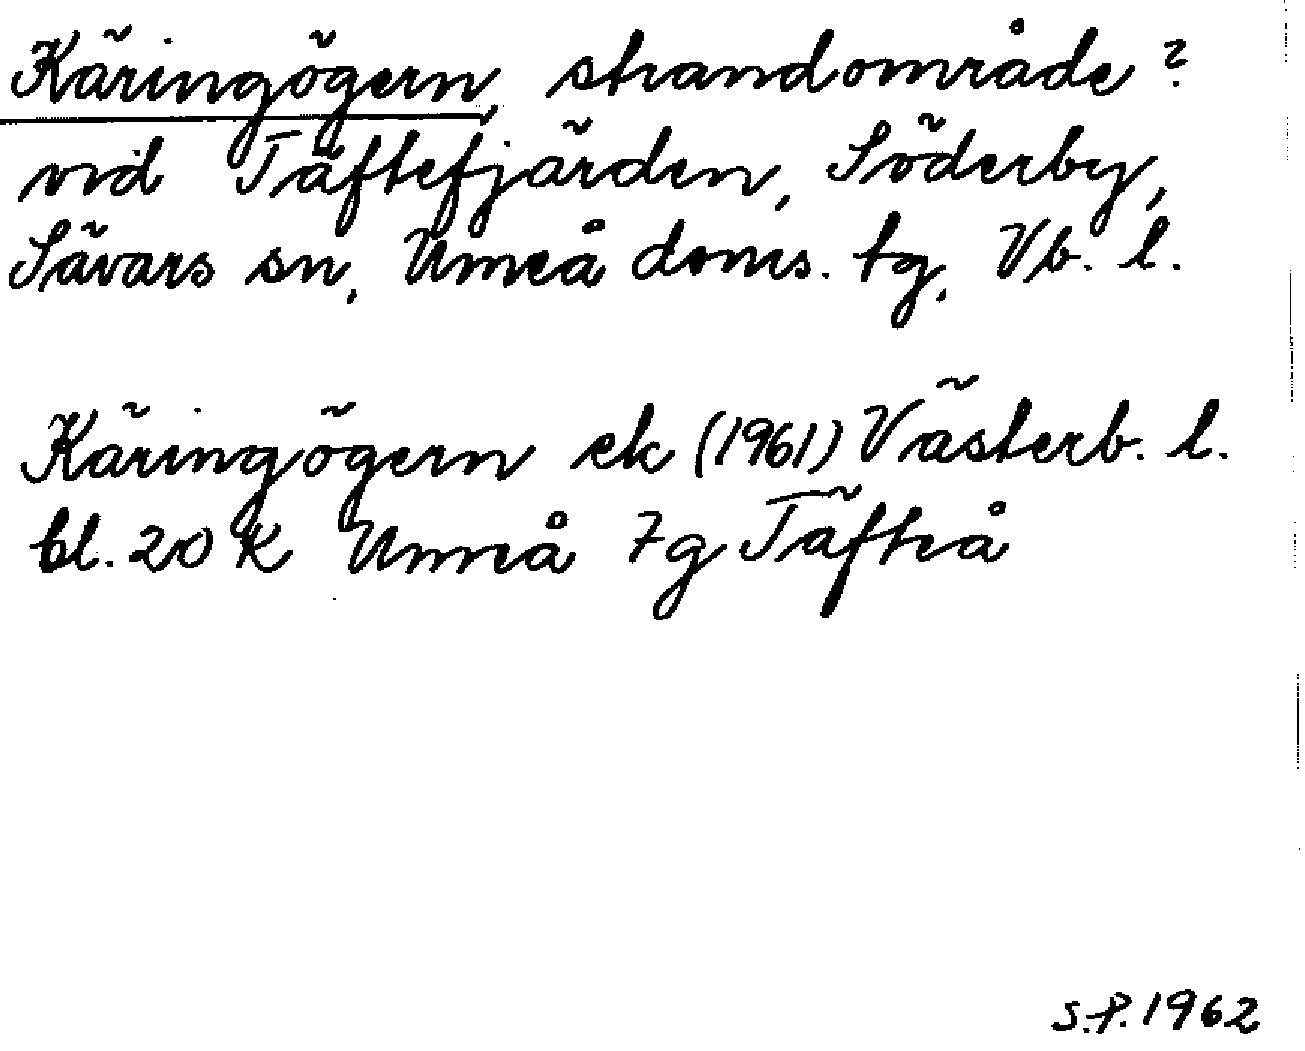 Käringögern, strandområde?
vid Täftefjärden, Söderby,
Sävars sn, Umeå doms. tg, Vb. l.
Käringögern ek (1961) Västerb. l.
bl. 20 K Umeå 7g Täfteå
S.P. 1962